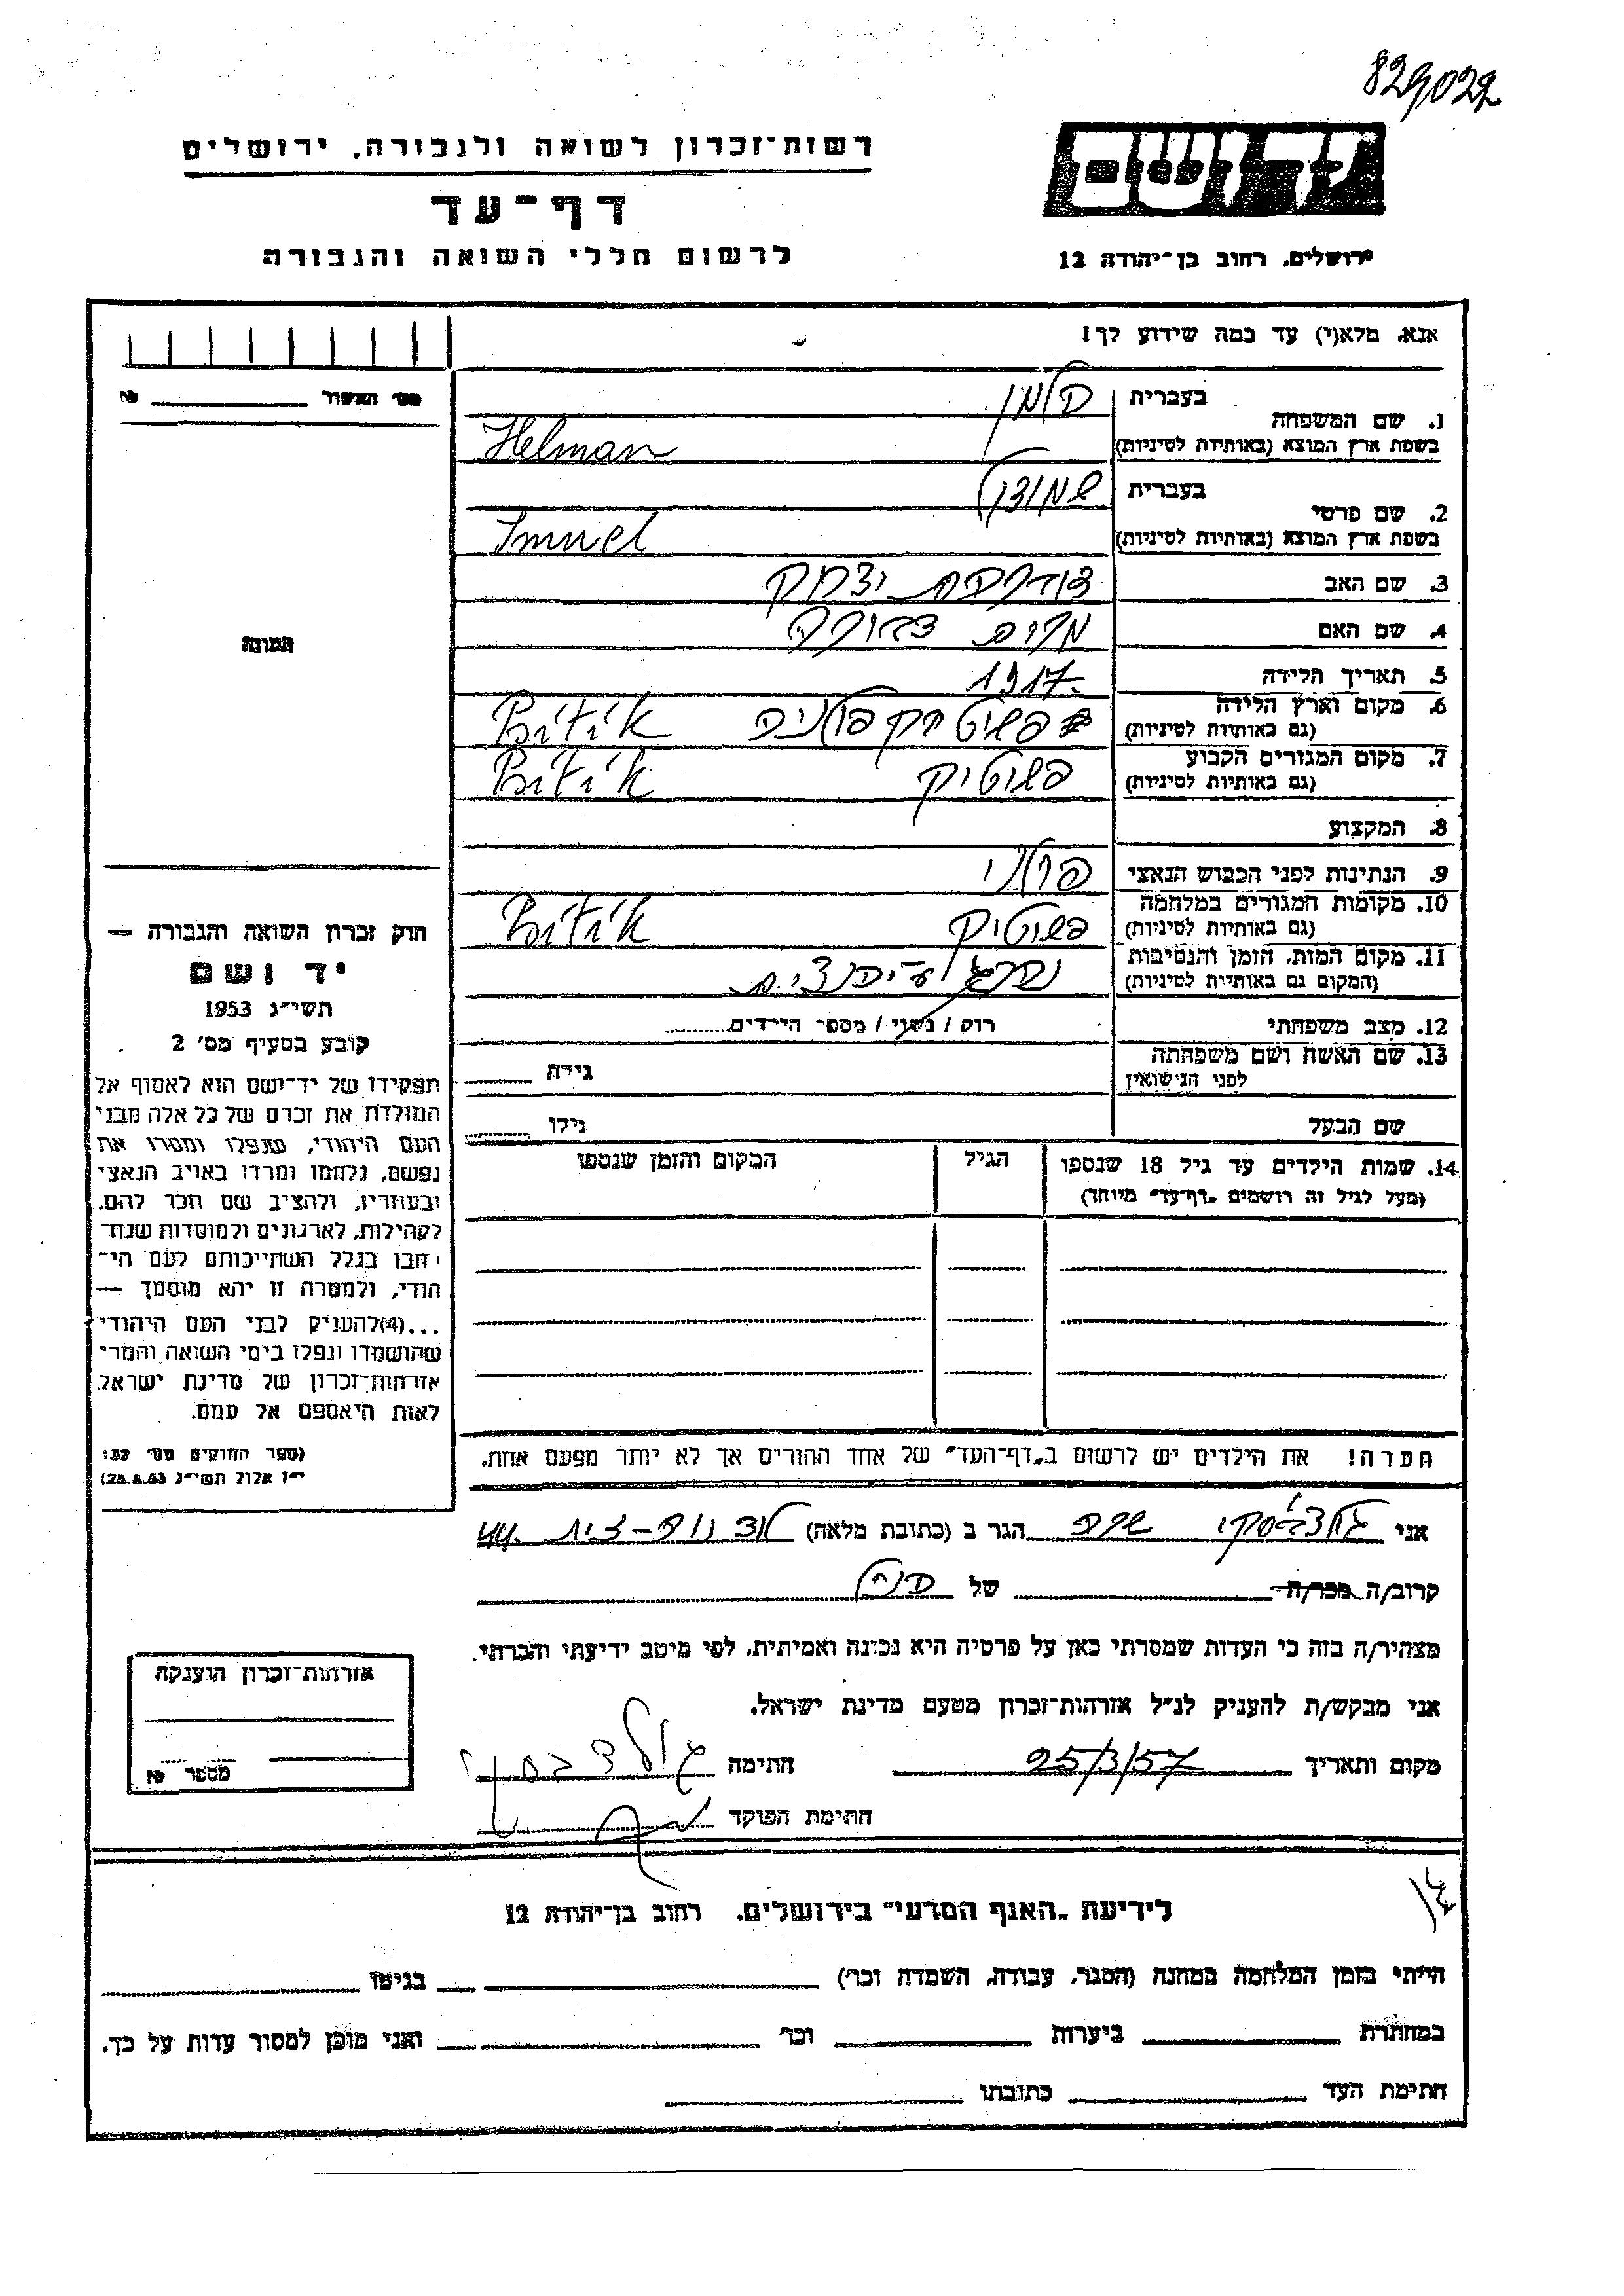 829022
רשות־זכרון לשואה ולגבורה, ירושלים
דף־עד
לרשום חללי השואה והגבורה
יד ושם
ירושלים, רחוב בן־יהודה 12
אנא, מלא(י) עד כמה שידוע לך!
1. שם המשפחה בעברית
בשפת ארץ המוצא (באותיות לטיניות) Helman
2. שם פרטי בעברית
בשפת ארץ המוצא (באותיות לטיניות)
3. שם האב יצחק
4. שם האם
5. תאריך הלידה 1917
6. מקום וארץ הלידה
(גם באותיות לטיניות)
7. מקום המגורים הקבוע
(גם באותיות לטיניות)
8. המקצוע
9. הנתינות לפני הכבוש הנאצי פולני
10. מקומות המגורים במלחמה
(גם באותיות לטיניות)
11. מקום המות, הזמן והנסיבות
(המקום גם באותיות לטיניות)
12. מצב משפחתי רווק / נשוי / מספר הילדים
13. שם האשה ושם משפחתה
לפני הנישואין גילה
שם הבעל גילו
14. שמות הילדים עד גיל 18 שנספו הגיל המקום והזמן שנספו
(מעל לגיל זה רושמים „דף־עד” מיוחד)
הערה! את הילדים יש לרשום ב„דף־העד” של אחד ההורים אך לא יותר מפעם אחת.
מס׳ האשור №
תמונה
חוק זכרון השואה והגבורה —
יד ושם
תשי״ג 1953
קובע בסעיף מס׳ 2
תפקידו של יד־ושם הוא לאסוף אל
המולדת את זכרם של כל אלה מבני
העם היהודי, שנפלו ומסרו את
נפשם, נלחמו ומרדו באויב הנאצי
ובעוזריו, ולהציב שם וזכר להם,
לקהילות, לארגונים ולמוסדות שנח־
רבו בגלל השתייכותם לעם הי־
הודי, ולמטרה זו יהא מוסמך —
...(4)להעניק לבני העם היהודי
שהושמדו ונפלו בימי השואה והמרי
אזרחות־זכרון של מדינת ישראל
לאות היאספם אל עמם.
(ספר החוקים מס׳ 132,
י״ז אלול תשי״ג 28.8.53)
אני שרה הגר ב (כתובת מלאה)
קרוב/ה מכר/ה של
מצהיר/ה בזה כי העדות שמסרתי כאן על פרטיה היא נכונה ואמיתית, לפי מיטב ידיעתי והכרתי.
אני מבקש/ת להעניק לנ״ל אזרחות־זכרון מטעם מדינת ישראל.
מקום ותאריך 25/3/57 חתימה
חתימת הפוקד
אזרחות־זכרון הוענקה
מספר №
לידיעת „האגף המדעי” בירושלים, רחוב בן־יהודה 12
הייתי בזמן המלחמה במחנה (הסגר, עבודה, השמדה וכו׳) בגיטו
במחתרת ביערות וכו׳ ואני מוכן למסור עדות על כך.
חתימת העד כתובתו